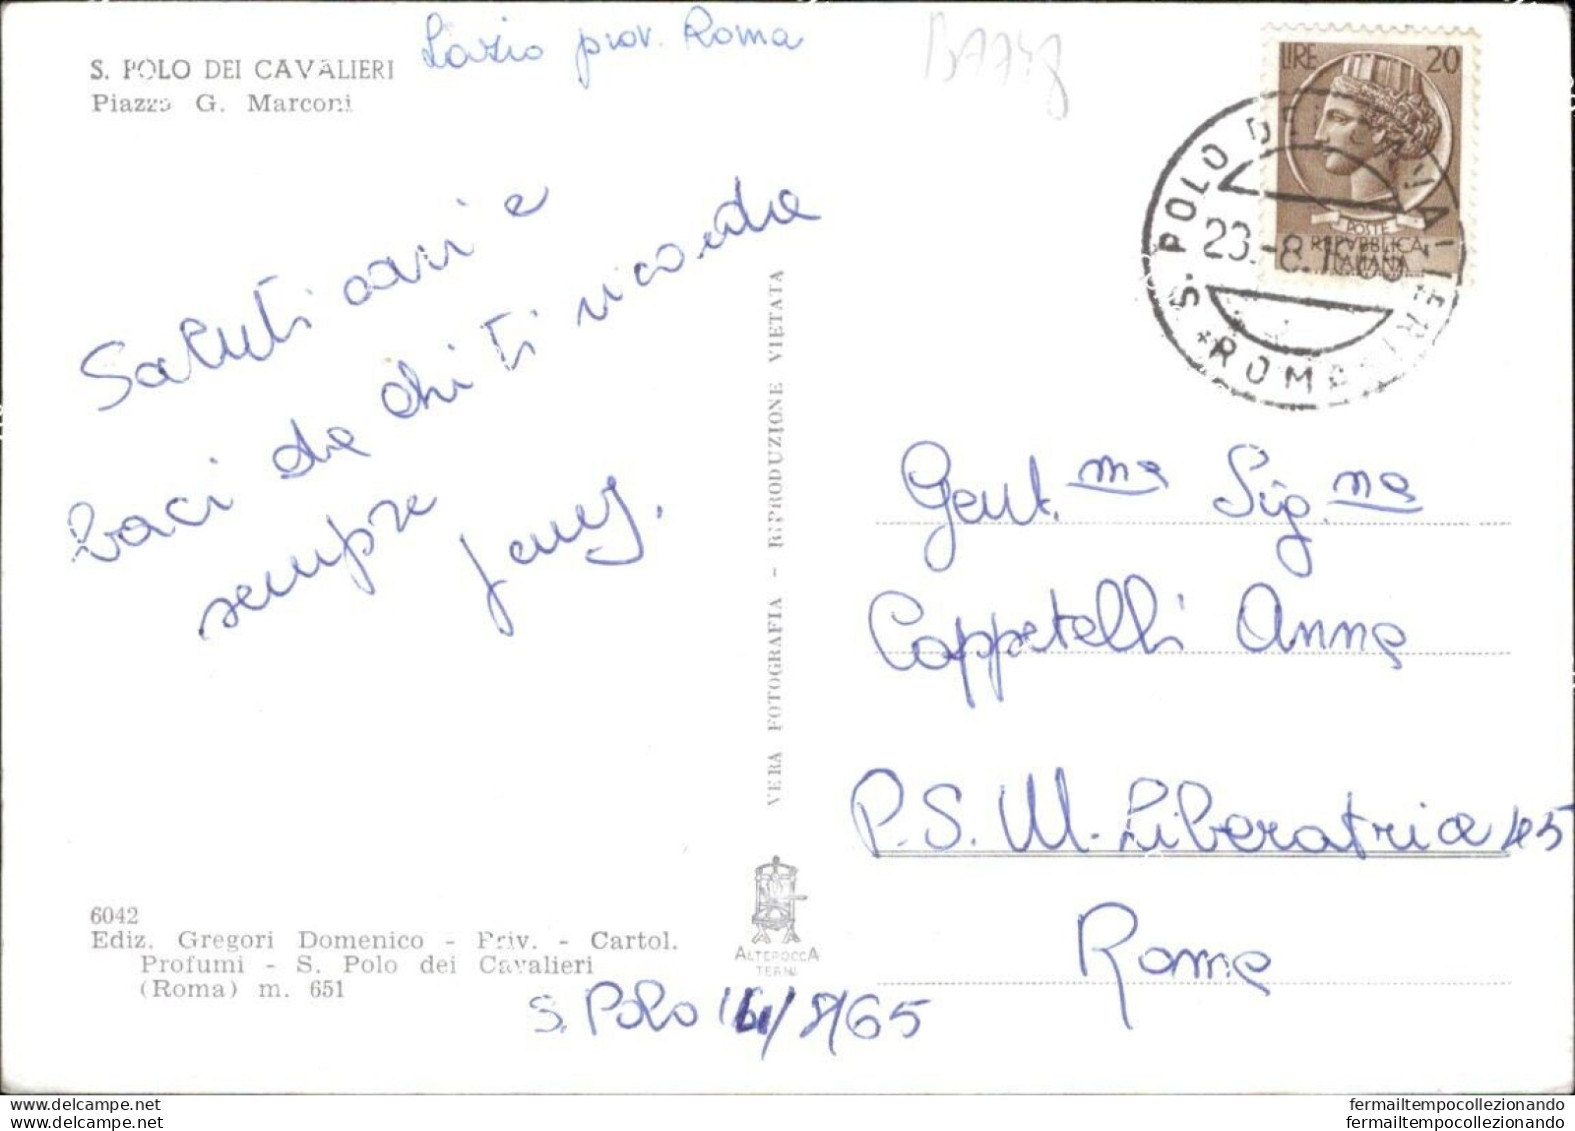 S. POLO DEI CAVALIERI
Piazza G. Marconi
Lazio prov. Roma
LIRE 20
POSTE
REPVBBLICA
ITALIANA
S. POLO DEI CAVALIERI
23.-8.
ROMA
Saluti cari e
baci da chi ti ricorda
sempre
VERA FOTOGRAFIA - RIPRODUZIONE VIETATA
Gent.ma Sig.na
Cappetelli Anna
P.S. M. Liberatrice 45
Roma
6042
Ediz. Gregori Domenico - Priv. - Cartol.
Profumi - S. Polo dei Cavalieri
(Roma) m. 651
ALTEROCCA
TERNI
S. Polo 14/8/65
fermailtempocollezionando
fermailtempocollezionando
fermailtempocollezionando
fermailtempocollezionando